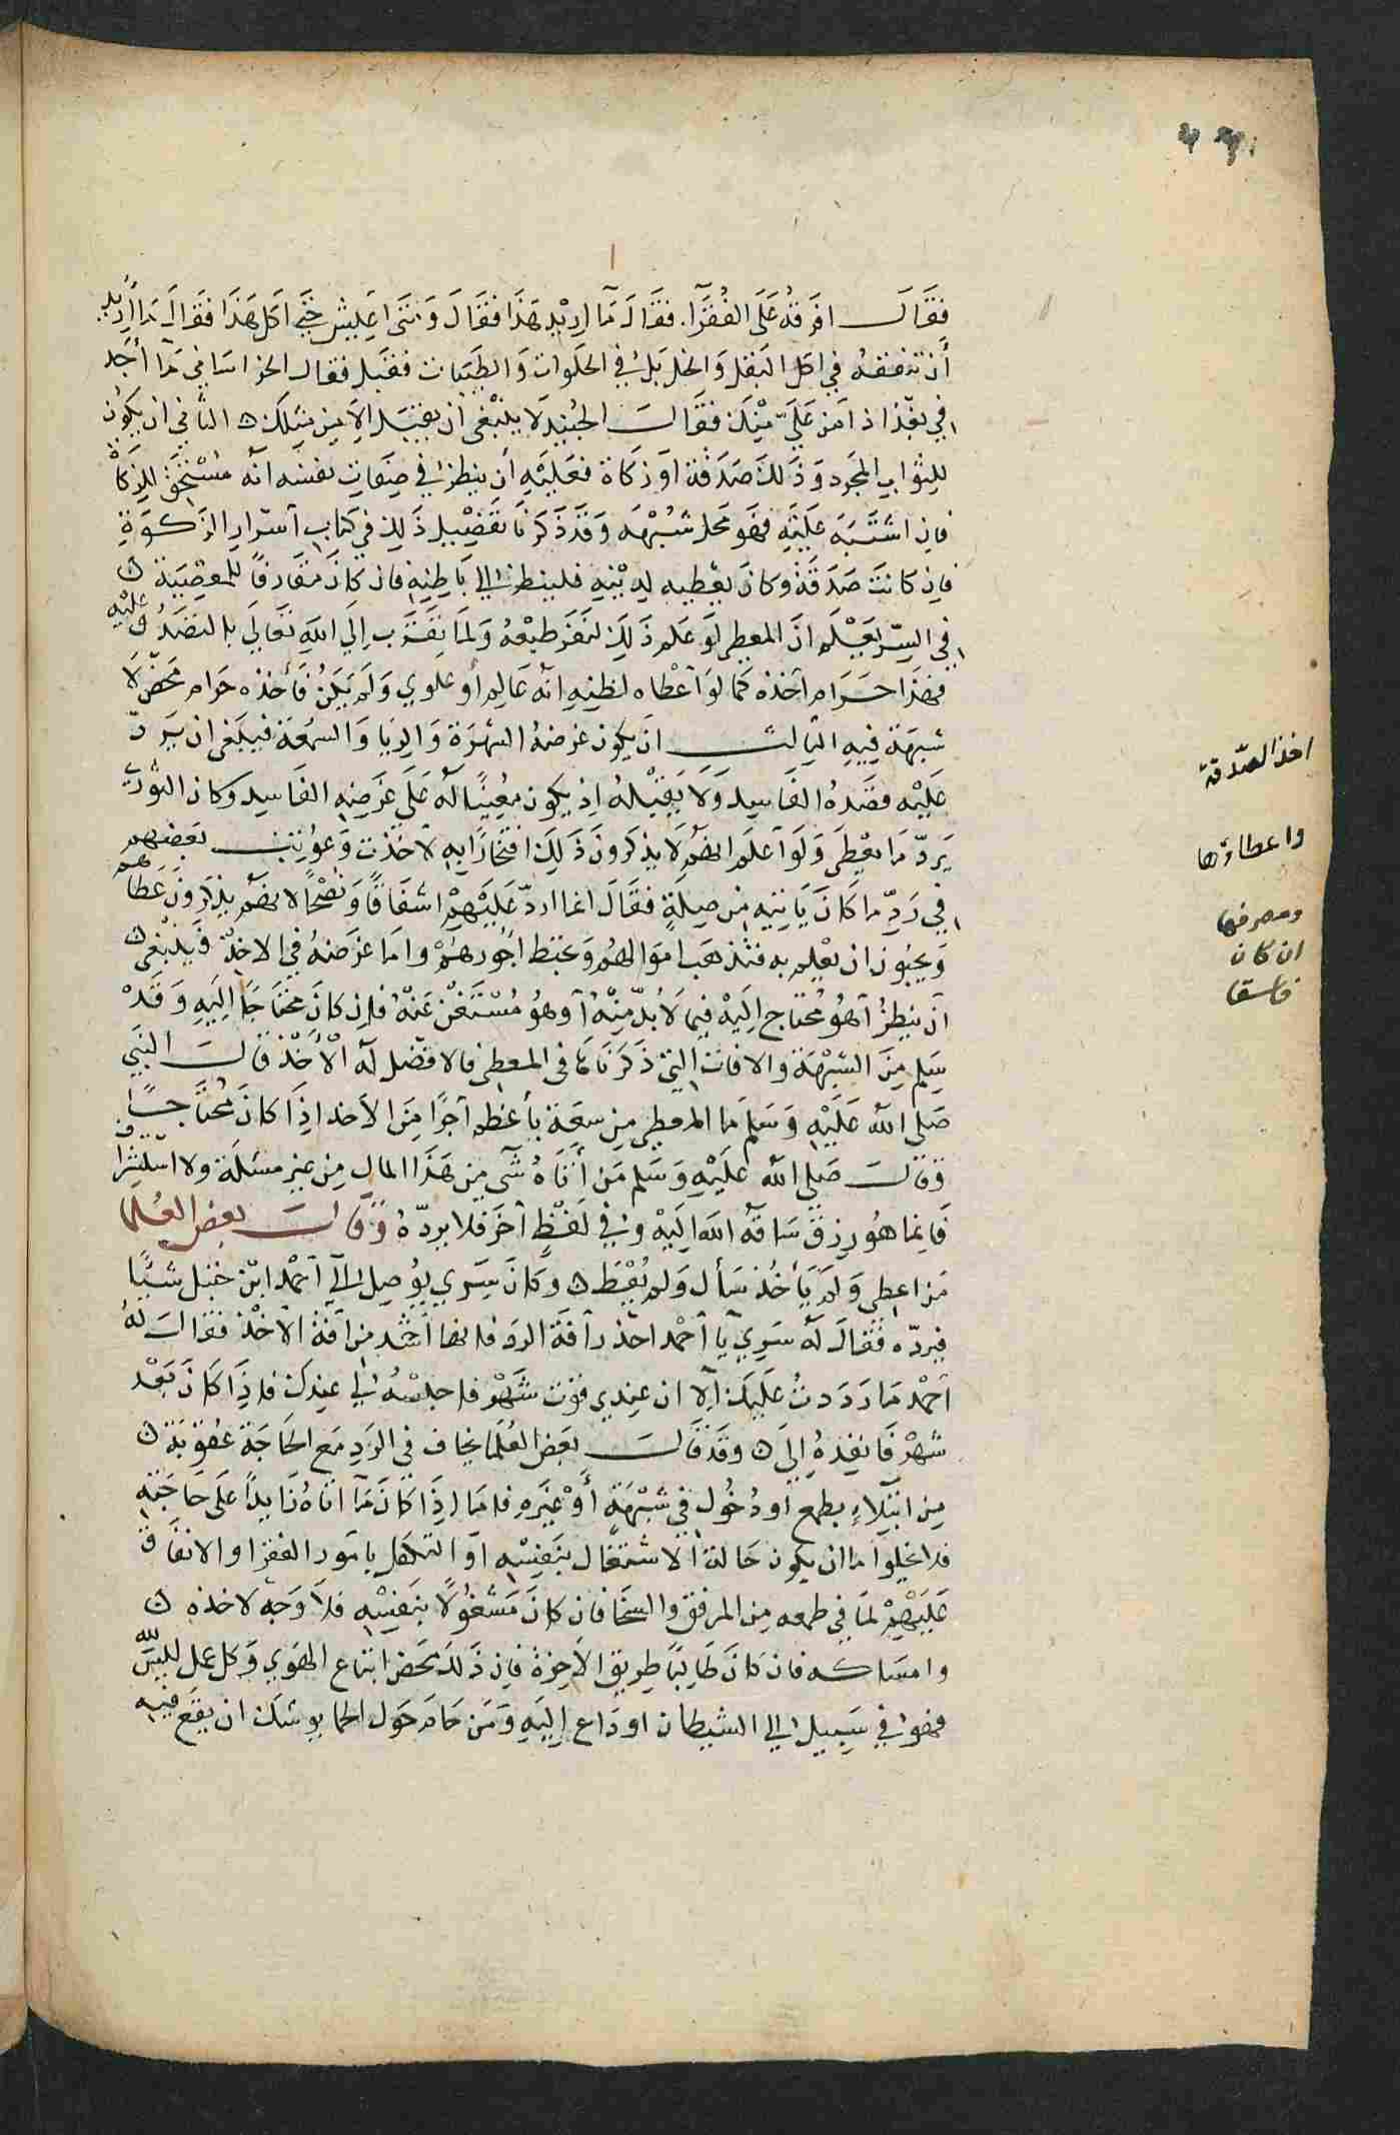 فقال افرقه على الفقرآ. فقال مآ اريد هذا فقال ومتى اعيش حتى اكل هذا فقال ما أريد
أن تنفقه في اكل البقل والخل بل في الحلوات والطيبات فقبل فقال الخراساني مآ أجد
في بغداذ امن علي منك فقال الجنيد لا ينبغي أن يقبل الا من مثلك ه الثاني ان يكون
للثواب المجرد وذلك صدقة او زكاة فعليه أن ينظر في صفات نفسه انه مستحق للزكاة
فان اشتبه عليه فهو محل شبهه وقد ذكرنا تفصيل ذلك في كتاب آسرار الزكوة
فان كانت صدقة وكان يعطيه لدينه فلينظر الي باطنه فان كان مقارفاً للمعصية ه
في السر يعلم ان المعطي لو علم ذلك لنفر طبعه ولما تقرب إلى الله تعالي بالتصدق عليه
فهذا حرام آخذه كما لو آعطاه لظنه انه عالم أو علوي ولم يكن فأخذه حرام محض لا
شبهة فيه الثالث ان يكون غرضه الشهرة والريا والسمعة فينبغي ان يرد
عليه قصده الفاسد ولا يقبله اذ يكون معينا له علي غرضه الفاسد وكان الثوري
يرد ما يعطى ولو آعلم انهم لا يذكرون ذلك افتخارا به لاخذت وعوتب بعضهم
في رد ما كان يأتيه من صلة فقال انما ارد عليهم اشفاقا ونصحا لانهم يذكرون عطاهم
ويحبون ان يعلم به فتذهب اموالهم وتحبط اجورهم واما غرضه في الاخذ فينبغي ه
آن ينظر آهو محتاج اليه فيما لا بد منه آو هو مستغن عنه فان كان محتاجا اليه وقد
سلم من الشبهة والافات التي ذكرناها في المعطي فالافضل له الأخذ قال النبي
صلى الله عليه وسلم ما المعطي من سعة بأعظم آجرا من الاخذ اذا كان محتاجا
وقال صلي الله عليه وسلم من أتاه شي من هذا المال من غير مسئلة ولا استشراف
فانما هو رزق ساقه الله اليه وفي لفظ آخر فلا يرده وقال بعض العلما
من اعطى ولم يأخذ سأل ولم يعط ه وكان سري يوصل الي آحمد ابن حنبل شيا
فيرده فقال له سري يآ آحمد احذر آفة الرد فانها آشد من آفة الاخذ فقال له
احمد ما رددت عليك آلا ان عندي قوت شهر فاحبسه لي عندك فاذا كان بعد
شهر فانفذه الى ه وقد قال بعض العلما يخاف في الرد مع الحاجة عقوبة ه
من ابتلاء بطمع آو دخول في شبهة أو غيره فاما اذا كان مآ اتاه زايدا على حاجته
فلا يخلوا ما ان يكون حاله الاشتغال بنفسه آو التكفل بآمور الفقرا والانفاق
عليهم لما في طمعه من المرفق والسخا فان كان مشغولا بنفسه فلا وجه لاخذه ه
وامساكه فان كان طالبا طريق الاخرة فان ذلك محض اتباع الهوي وكل عمل ليس لله
فهو في سبيل الي الشيطان او داع اليه ومن حام حول الحما يوشك ان يقع فيه
اخذ الصدقة
واعطاؤها
ومصرفها
ان كان
فاسقا